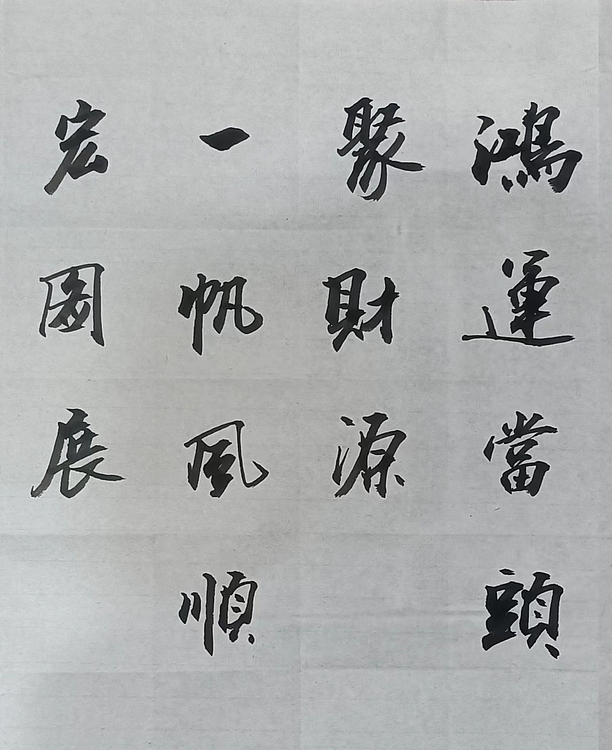 鴻運當頭
聚財源
一帆風順
宏圖展